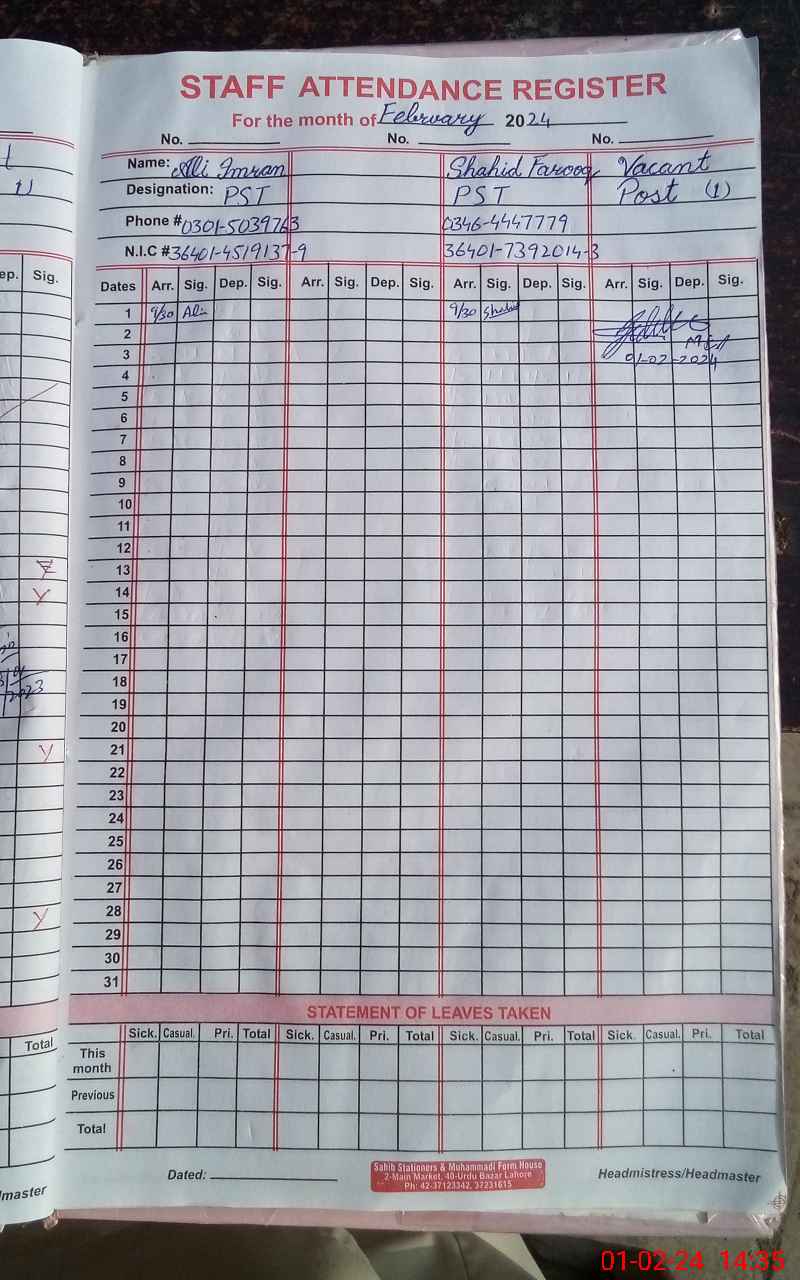 STAFF ATTENDANCE REGISTER
For the month of February 2024
No. No. No.
Name: Ali Imran Shahid Farooq Vacant
Designation: PST PST Post (1)
Phone # 0301-5039763 0346-4447779
N.I.C # 36401-4519137-9 36401-7392014-3
ep. Sig. Dates Arr. Sig. Dep. Sig. Arr. Sig. Dep. Sig. Arr. Sig. Dep. Sig. Arr. Sig. Dep. Sig.
1 9/30 Ali 9/30 Shahid
2
3 01-02-2024
4
5
6
7
8
9
10
11
12
13
14
15
16
17
18
19
20
21
22
23
24
25
26
27
28
29
30
31
STATEMENT OF LEAVES TAKEN
Sick. Casual. Pri. Total Sick. Casual. Pri. Total Sick. Casual. Pri. Total Sick. Casual. Pri. Total
Total This month
Previous
Total
Dated: Headmistress/Headmaster
Sahib Stationers & Muhammadi Form House
2-Main Market, 40-Urdu Bazar Lahore
Ph: 42-37123342, 37231615
master
01-02-24 14:35